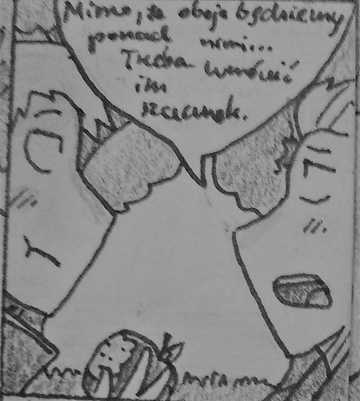 Mimo, że oboje będziemy
ponad nimi...
Trzeba
im
szacunek.